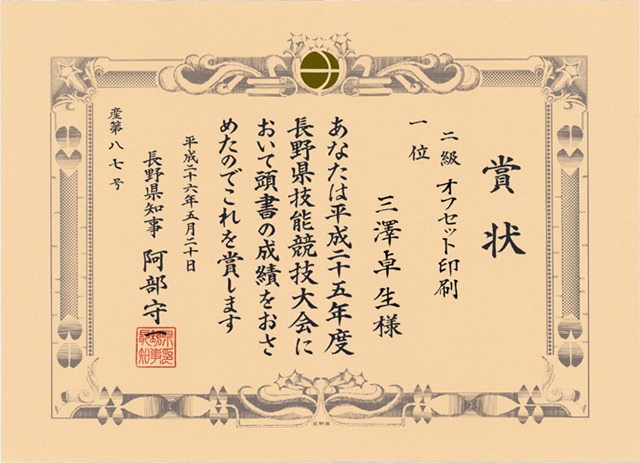 賞状
二級 オフセット印刷
一位
三澤卓生様
あなたは平成二十五年度
長野県技能競技大会に
おいて頭書の成績をおさ
めたのでこれを賞します
平成二十六年五月二十日
長野県知事 阿部守一
産第八七号
長野県知事印
長野県